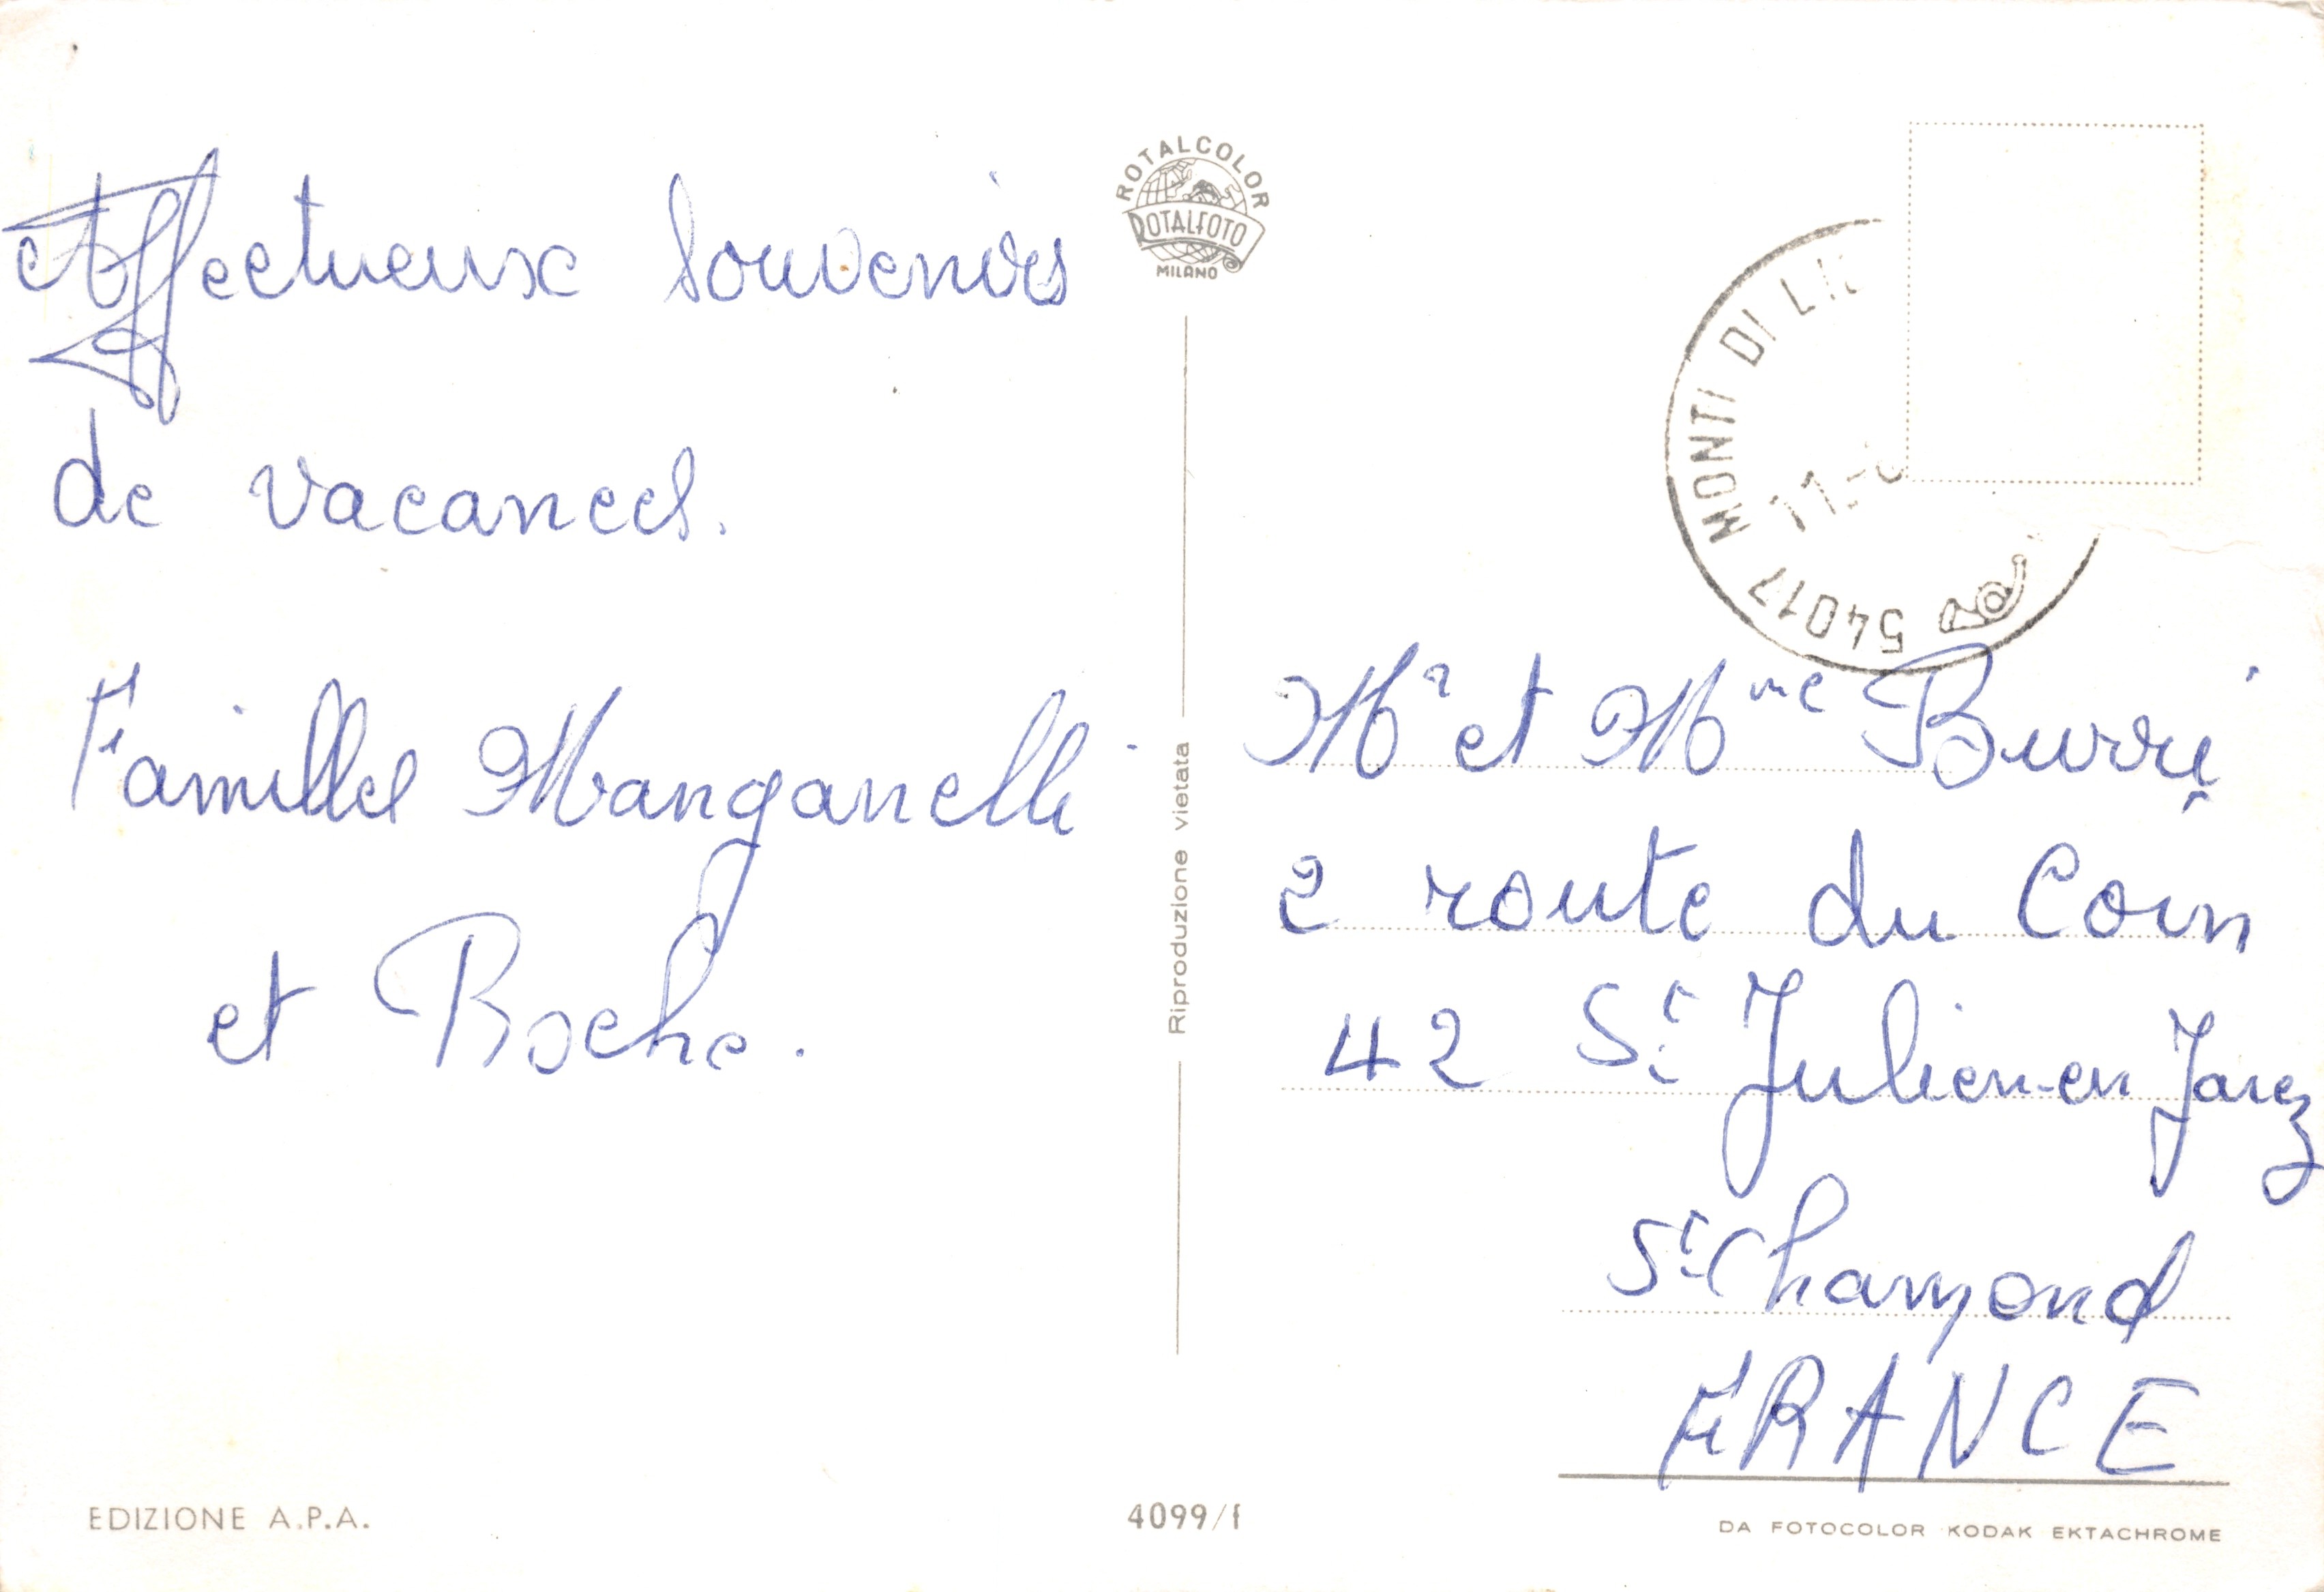 Affectueux souvenirs
de vacances.
Familles Manganelli
et Roche.
ROTALCOLOR
ROTALFOTO
MILANO
Riproduzione vietata
54017 MONTI DI
11-
Mr et Mme Burri
2 route du Coin
42 St Julien-en Jarez
St Chamond
FRANCE
EDIZIONE A.P.A.
4099/f
DA FOTOCOLOR KODAK EKTACHROME